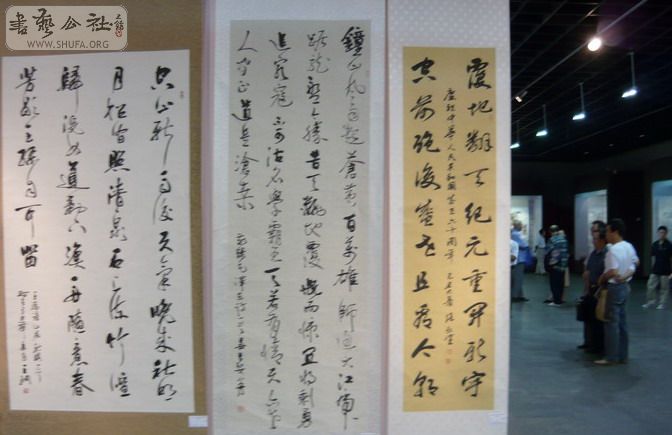 覆地翻天紀元重開新宇
空前絕後盛世且看今朝
慶祝中華人民共和國成立六十周年
鐘山风雨起蒼黄百萬雄師过大江虎
踞龍盤今勝昔天翻地覆慨而慷宜将剩勇
追窮寇不可沽名學霸王天若有情天亦老
人間正道是滄桑
空山新雨後天氣晚来秋明
月松間照清泉石上流竹喧
歸浣女蓮動下漁舟隨意春
芳歇王孫自可留
書藝公社
WWW.SHUFA.ORG